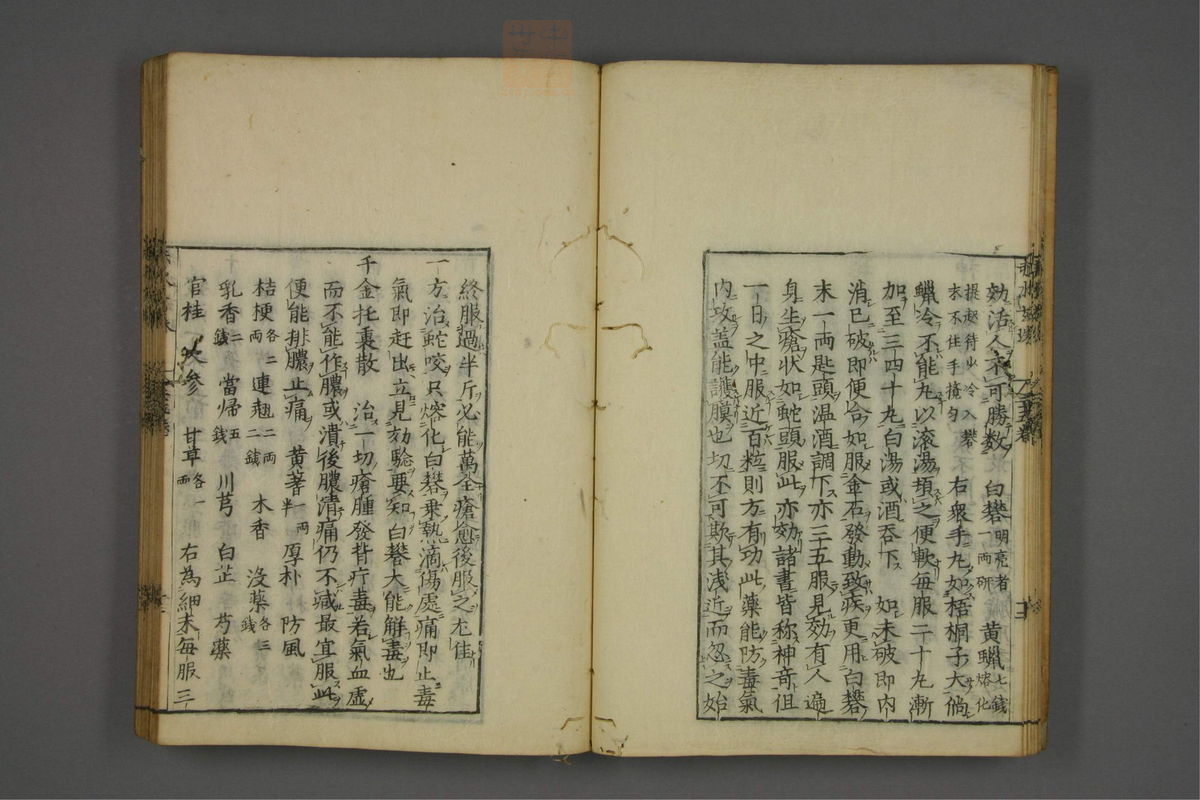 効活人不可勝数 白礬明亮者一両研 黄蠟七銭熔化
提起待少冷入礬末不住手攪匀 右衆手丸如梧桐子大倘
蠟冷不能丸以滚湯頓之便軟毎服二十丸漸
加至三四十丸白湯或酒吞下 如未破即内
消已破即便合如服金石發動致疾更用白礬
末一両匙頭温酒調下亦三五服見効有人遍
身生瘡状如蛇頭服此亦効諸書皆称神奇但
一日之中服近百粒則方有功此薬能防毒氣
内攻盖能護膜也切不可欺其浅近而忽之始
終服過半斤必能萬全瘡愈後服之尤佳
一方治蛇咬只熔化白礬乗熱滴傷處痛即止毒
氣即赶出立見効驗要知白礬大能解毒也
千金托裏散 治一切瘡腫發背疔毒若氣血虚
而不能作膿或潰後膿清痛仍不減最宜服此
便能排膿止痛 黄蓍一両半 厚朴 防風
桔梗各二両 連翹二両二銭 木香 没薬各三銭
乳香二銭 當帰五銭 川芎 白芷 芍薬
官桂 人参 甘草各一両 右為細末毎服三